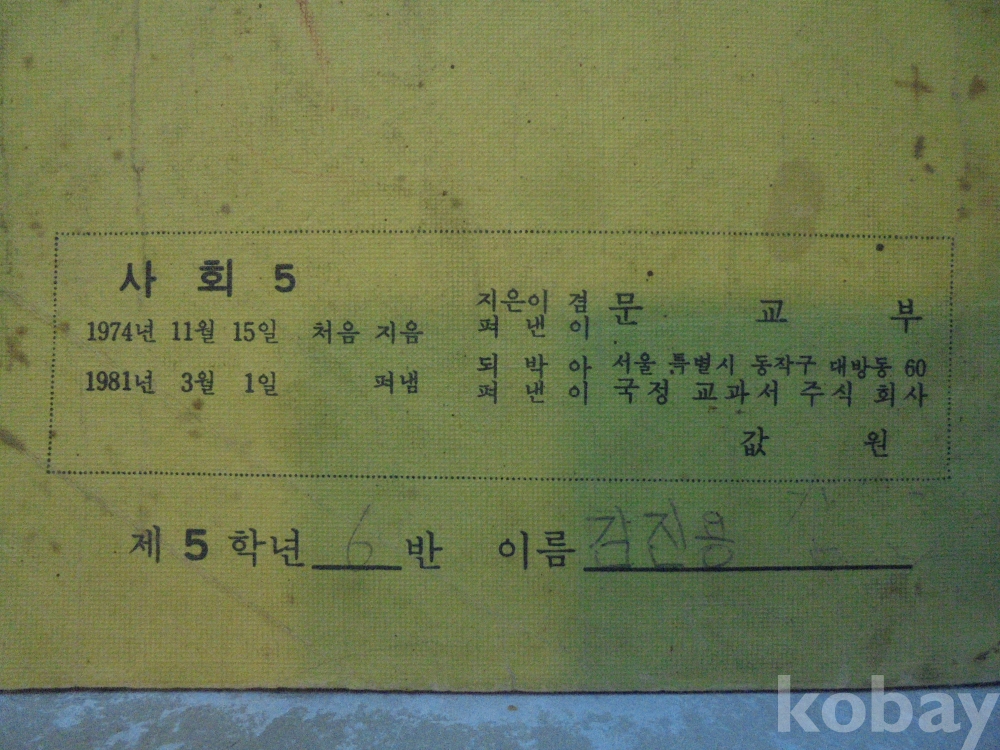 사 회 5
1974년 11월 15일 처음 지음
1981년 3월 1일 펴냄
지은이 겸
펴 낸 이
문 교 부
되 박 아 서울 특별시 동작구 대방동 60
펴 낸 이 국정 교과서 주식 회사
값 원
제 5 학년 6 반 이름 김진용
kobay